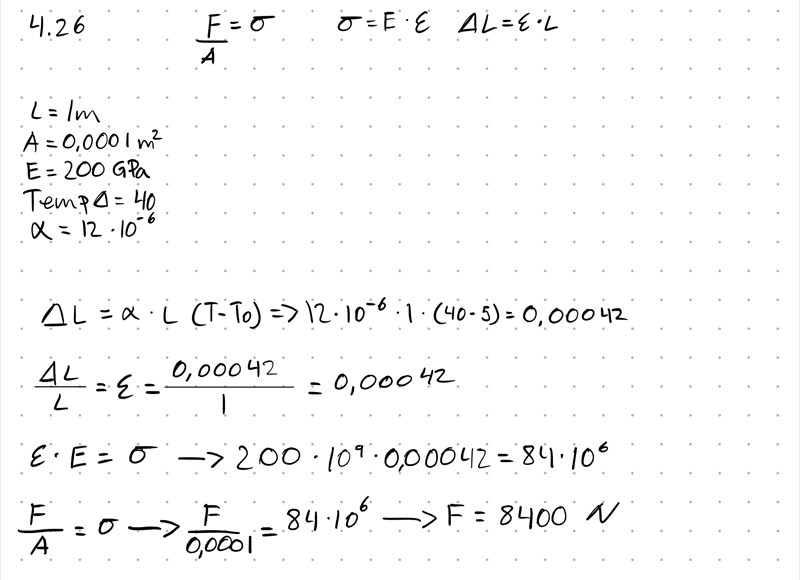 4.26 F/A = σ σ = E · ε ΔL = ε · L
L = 1m
A = 0,0001 m²
E = 200 GPa
Temp Δ = 40
α = 12 · 10⁻⁶
ΔL = α · L (T-T0) => 12 · 10⁻⁶ · 1 · (40-5) = 0,00042
ΔL/L = ε = 0,00042/1 = 0,00042
ε · E = σ → 200 · 10⁹ · 0,00042 = 84 · 10⁶
F/A = σ → F/0,0001 = 84 · 10⁶ → F = 8400 N